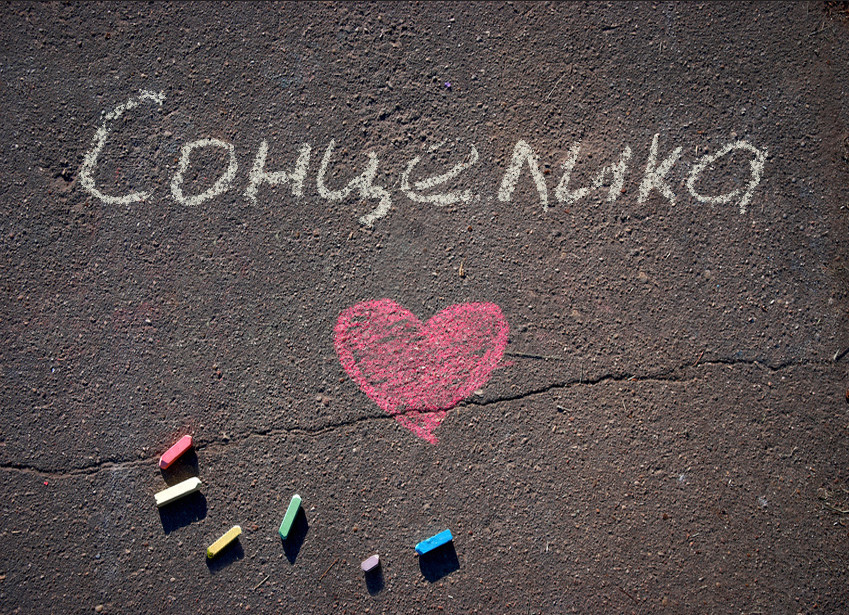 Сонцелика